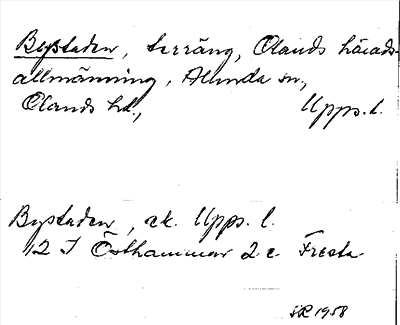 Bystaden, terräng, Olands härads-
allmänning, Alunda sn,
Olands hd., Upps. l.
Bystaden, ek. Upps. l.
12 I Östhammar 2 c Fresta
1958